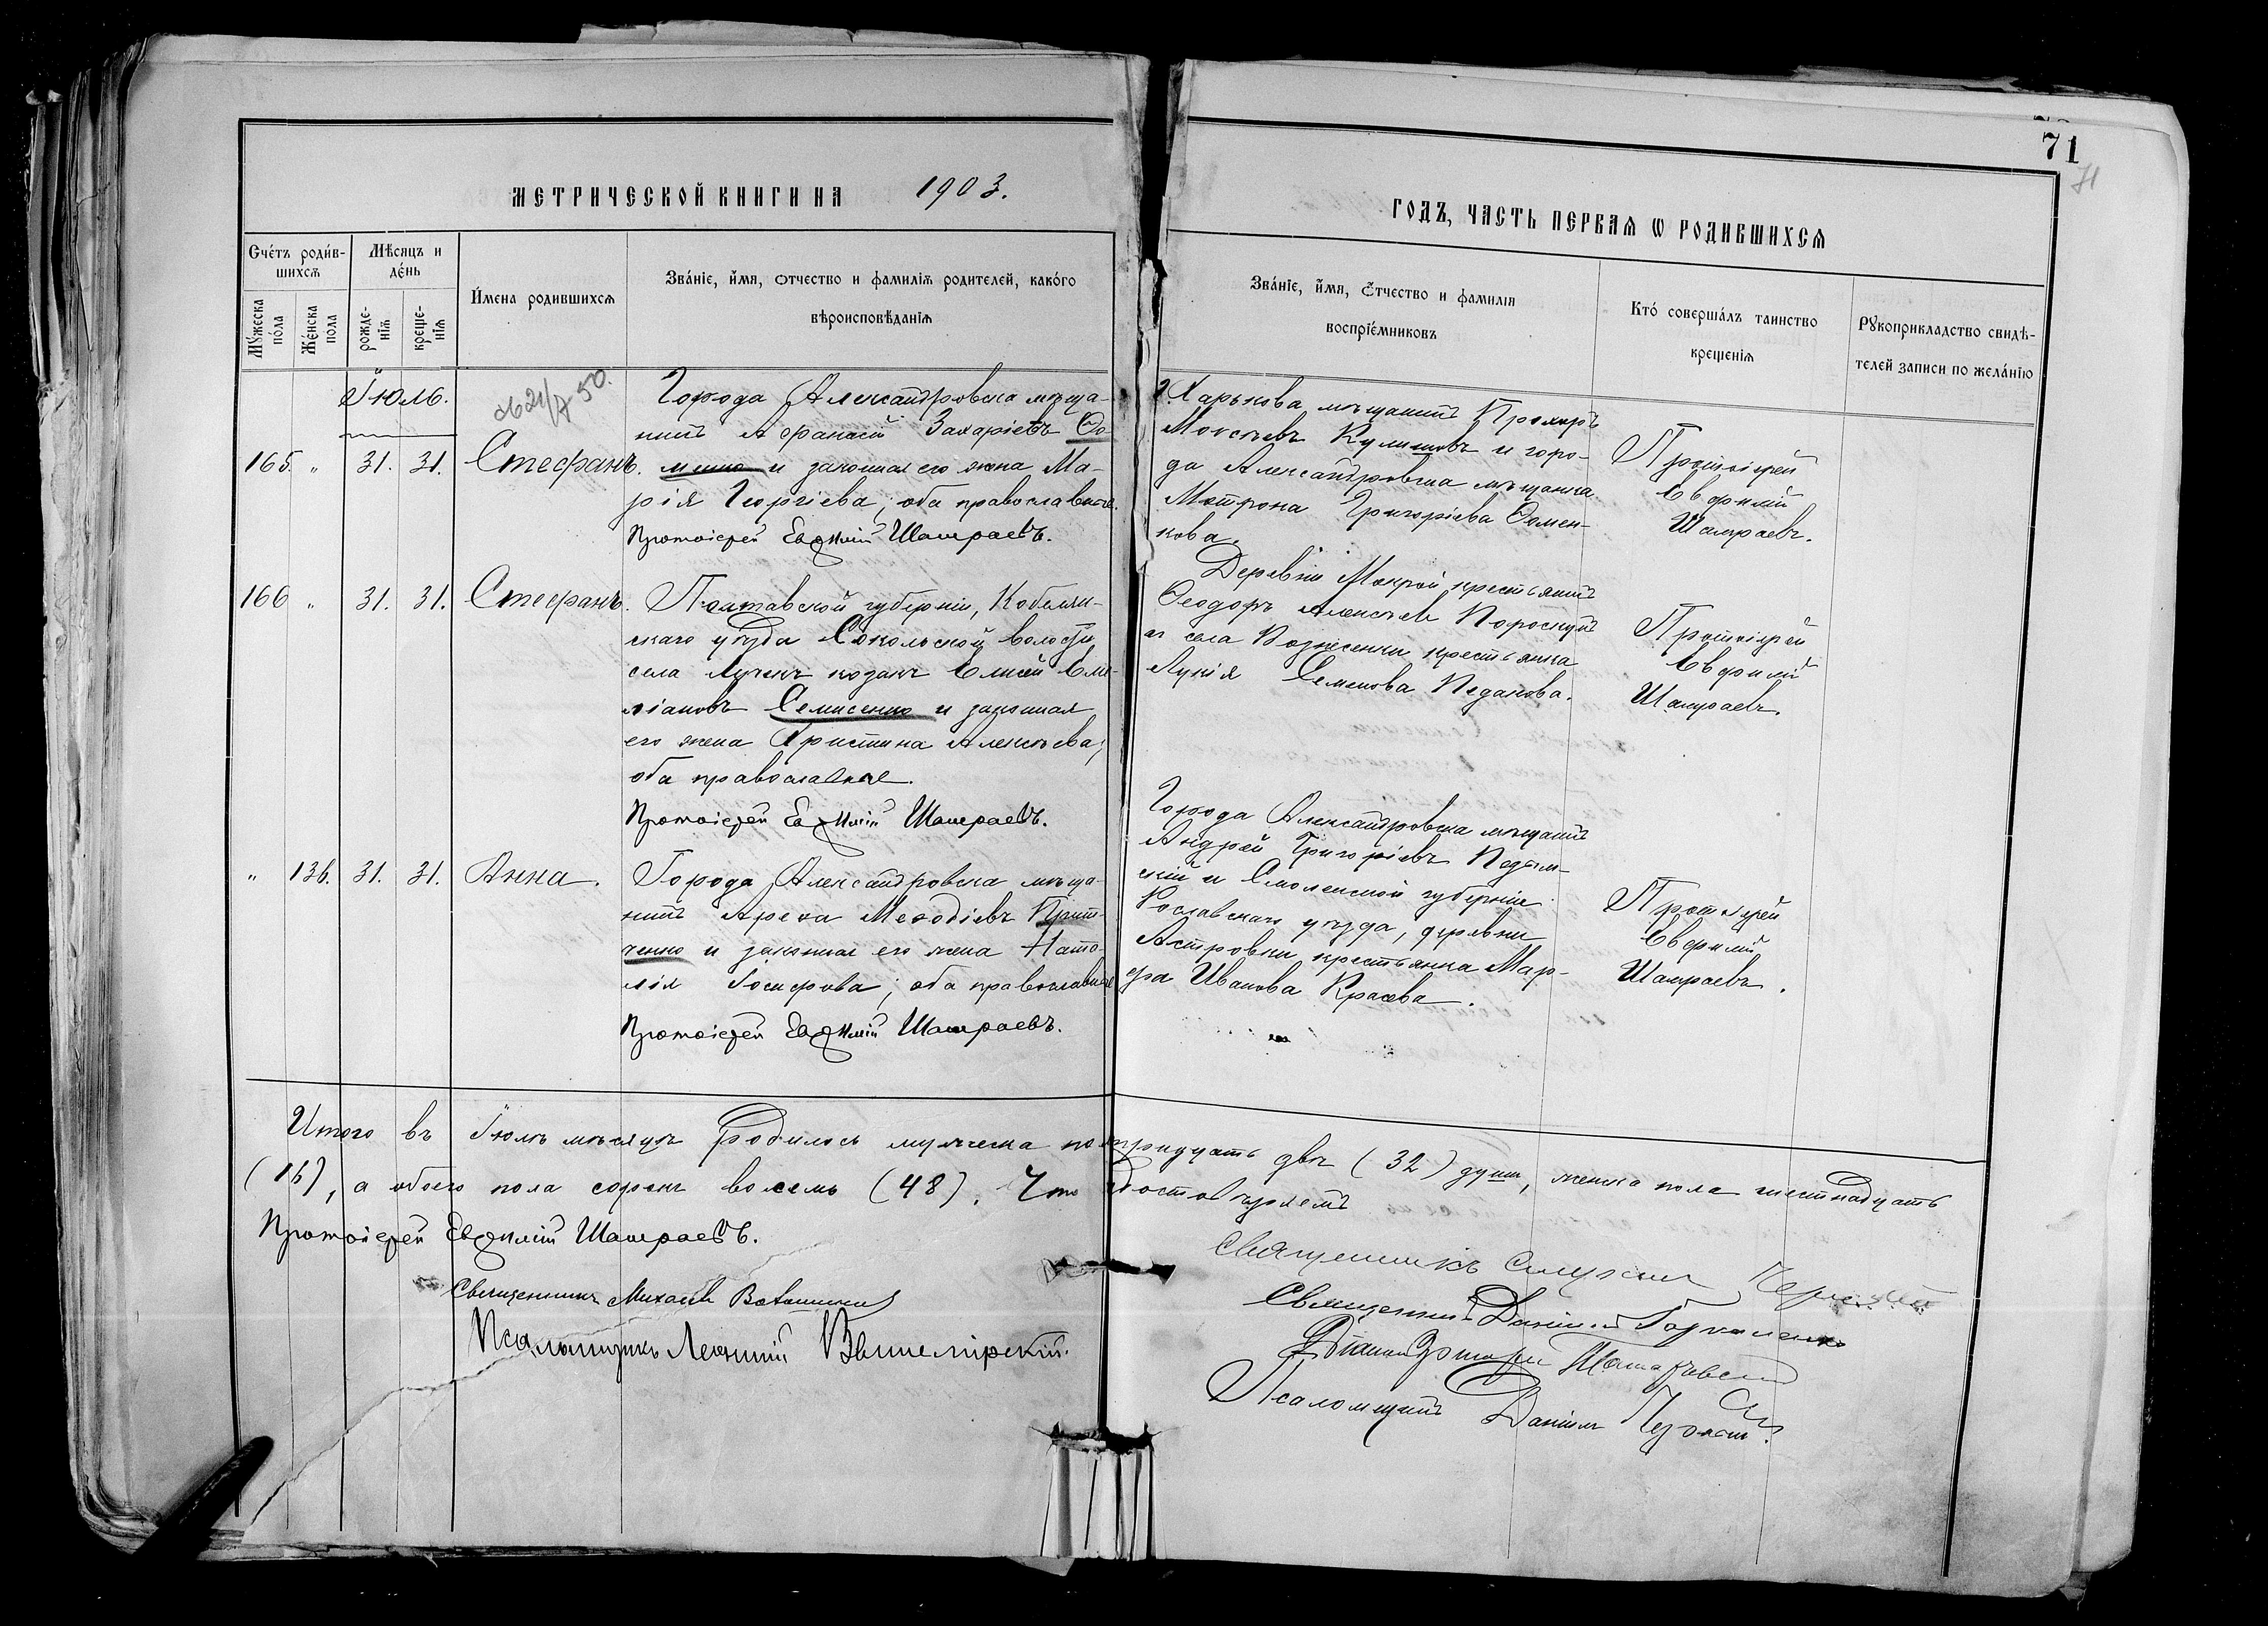 71
71
МЕТРИЧЕСКОЙ КНИГИ НА 1903.
ГОДЪ, ЧАСТЬ ПЕРВАЯ Ѡ РОДИВШИХСЯ
Сче́тъ роди́в-
шихсѧ
Мѣсяцъ и
де́нь
Мꙋжеска по́ла
Же́нска пола
рожде-
нїѧ
креще-
нїѧ
И́мена родившихсѧ
Зва́нїе, и́мѧ, отчество и фамилїѧ родителей, како́го
вѣроисповѣданїѧ
Зва́нїе, и́мѧ, ѻтчество и фамилїѧ
воспрїе́мниковъ
Кто́ соверша́лъ таинство
крещенїѧ
Рꙋкоприкладство свидѣ-
телей записи по жела́нїю
Іюль.
21/X 50.
165. „ 31. 31. Стефанъ.
Города Александровска мѣща-
нинъ Афанасій Захаріевъ Ѳо-
менко и законная его жена Ма-
рія Георгіева; оба православные.
Протоіерей Евѳимій Шамраевъ.
г. Харькова мѣщанинъ Прохоръ
Моисѣевъ Кулишовъ и горо-
да Александровска мѣщанка
Матрона Григоріева Ѳомен-
кова.
Протоіерей
Евфимій
Шамраевъ.
166 „ 31. 31. Стефанъ.
Полтавской губерніи, Кобеляк-
скаго уѣзда Сокольской волости
села Лучекъ козакъ Елисей Еме-
ліановъ Семисенко и законная
его жена Христина Алексѣева;
оба православные.
Протоіерей Евѳимій Шамраевъ.
Деревни Мокрой крестьянинъ
Ѳеодоръ Алексѣевъ Пороскунъ
и села Вознесенки крестьянка
Лукія Семенова Педанова.
Протоіерей
Евфимій
Шамраевъ.
„ 136. 31. 31. Анна.
Города Александровска мѣща-
нинъ Арефа Меѳодіевъ Прит-
ченко и законная его жена Ната-
лія Іосифова; оба православные
Протоіерей Евѳимій Шамраевъ.
Города Александровска мѣщанинъ
Андрей Григоріевъ Подтын-
скій и Смоленской губерніи
Рославскаго уѣзда, деревни
Астровки крестьянка Мар-
фа Иванова Красева.
Протоіерей
Евфимій
Шамраевъ.
Итого въ Іюлѣ мѣсяцѣ родилось мужеска пола тридцать двѣ (32) души, женска пола шестнадцать
(16), а обоего пола сорокъ восемь (48). Что достовѣряемъ
Протоіерей Евѳимій Шамраевъ.
Священникъ Михаилъ
Псаломщикъ Леонтій Вышемірскій.
Священникъ
Священникъ Даніилъ
Діаконъ
Псаломщикъ Даніилъ